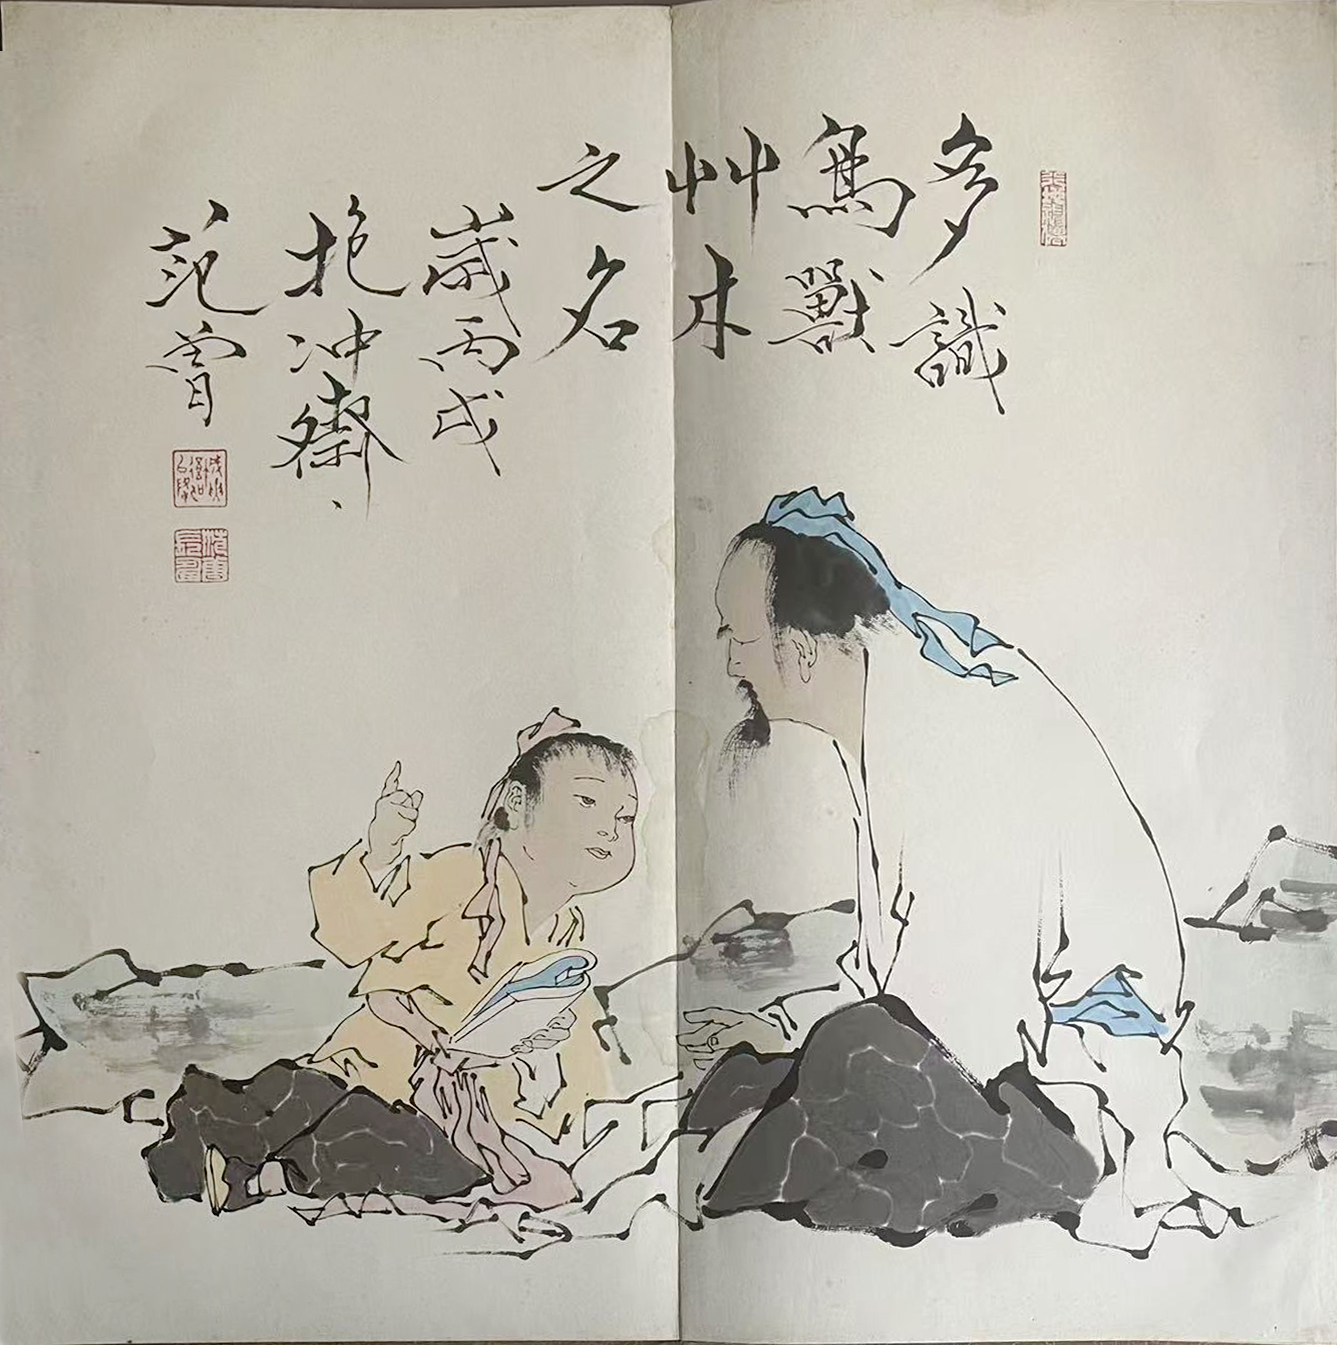 多識
鳥獸
艸木
之名
歲丙戌
抱冲齋、
范曾